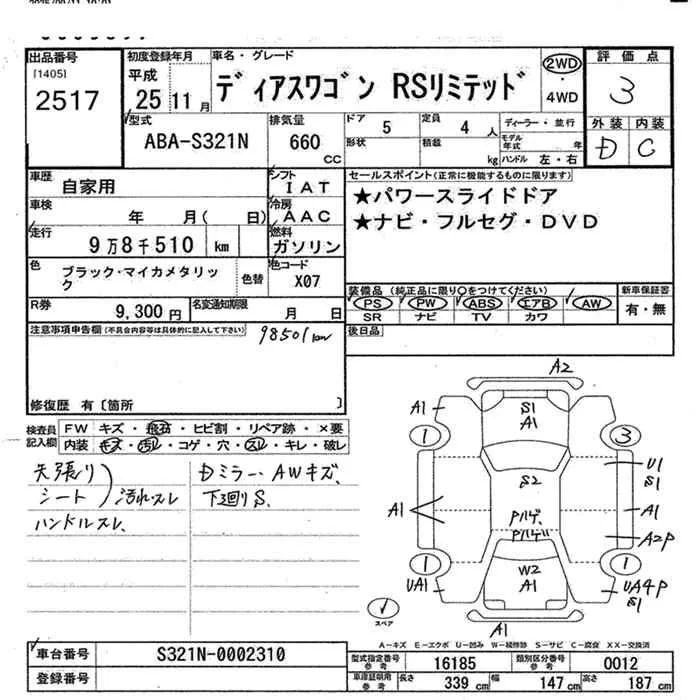 出品番号
[1405]
2517
初度登録年月
平成
25 11月
車名・グレード
ディアスワゴン RSリミテッド
2WD
・
4WD
評価点
3
外装 内装
D C
型式
ABA-S321N
排気量
660
CC
ドア 5
定員 4 人
形状
積載 kg
ディーラー・並行
モデル年式 年
ハンドル 左・右
車歴 自家用
シフト IAT
車検 年 月( 日)
冷房 AAC
走行 9万8千510 km
燃料 ガソリン
色 ブラック・マイカメタリック
色替
色コード X07
R券 9,300円
名変通知期限 月 日
セールスポイント(正常に機能するものに限ります)
★パワースライドドア
★ナビ・フルセグ・DVD
装備品(純正品に限り○をつけてください)
PS PW ABS エアB AW
SR ナビ TV カワ
新車保証書
有・無
注意事項申告欄(不具合内容等は具体的に記入して下さい)
98501km
後日品
修復歴 有〔箇所 〕
検査員記入欄
FW キズ・飛石・ヒビ割・リペア跡・×要
内装 キズ・汚れ・コゲ・穴・スレ・キレ・破レ
天張り
シート
汚れスレ
ハンドルスレ
Dミラー、AWキズ、
下廻りS、
A2
A1
S1
A1
1
3
S2
U1
S1
A1
A1
Pハゲ、
Pハゲ
A2P
1
1
W2
A1
UA1
UA4P
S1
スペア
A1
A-キズ E-エクボ U-凹み W-補修跡 S-サビ C-腐食 XX-交換済
車台番号 S321N-0002310
登録番号
型式指定番号 参考 16185
類別区分番号 参考 0012
車庫証明用 参考 長さ 339 cm 幅 147 cm 高さ 187 cm